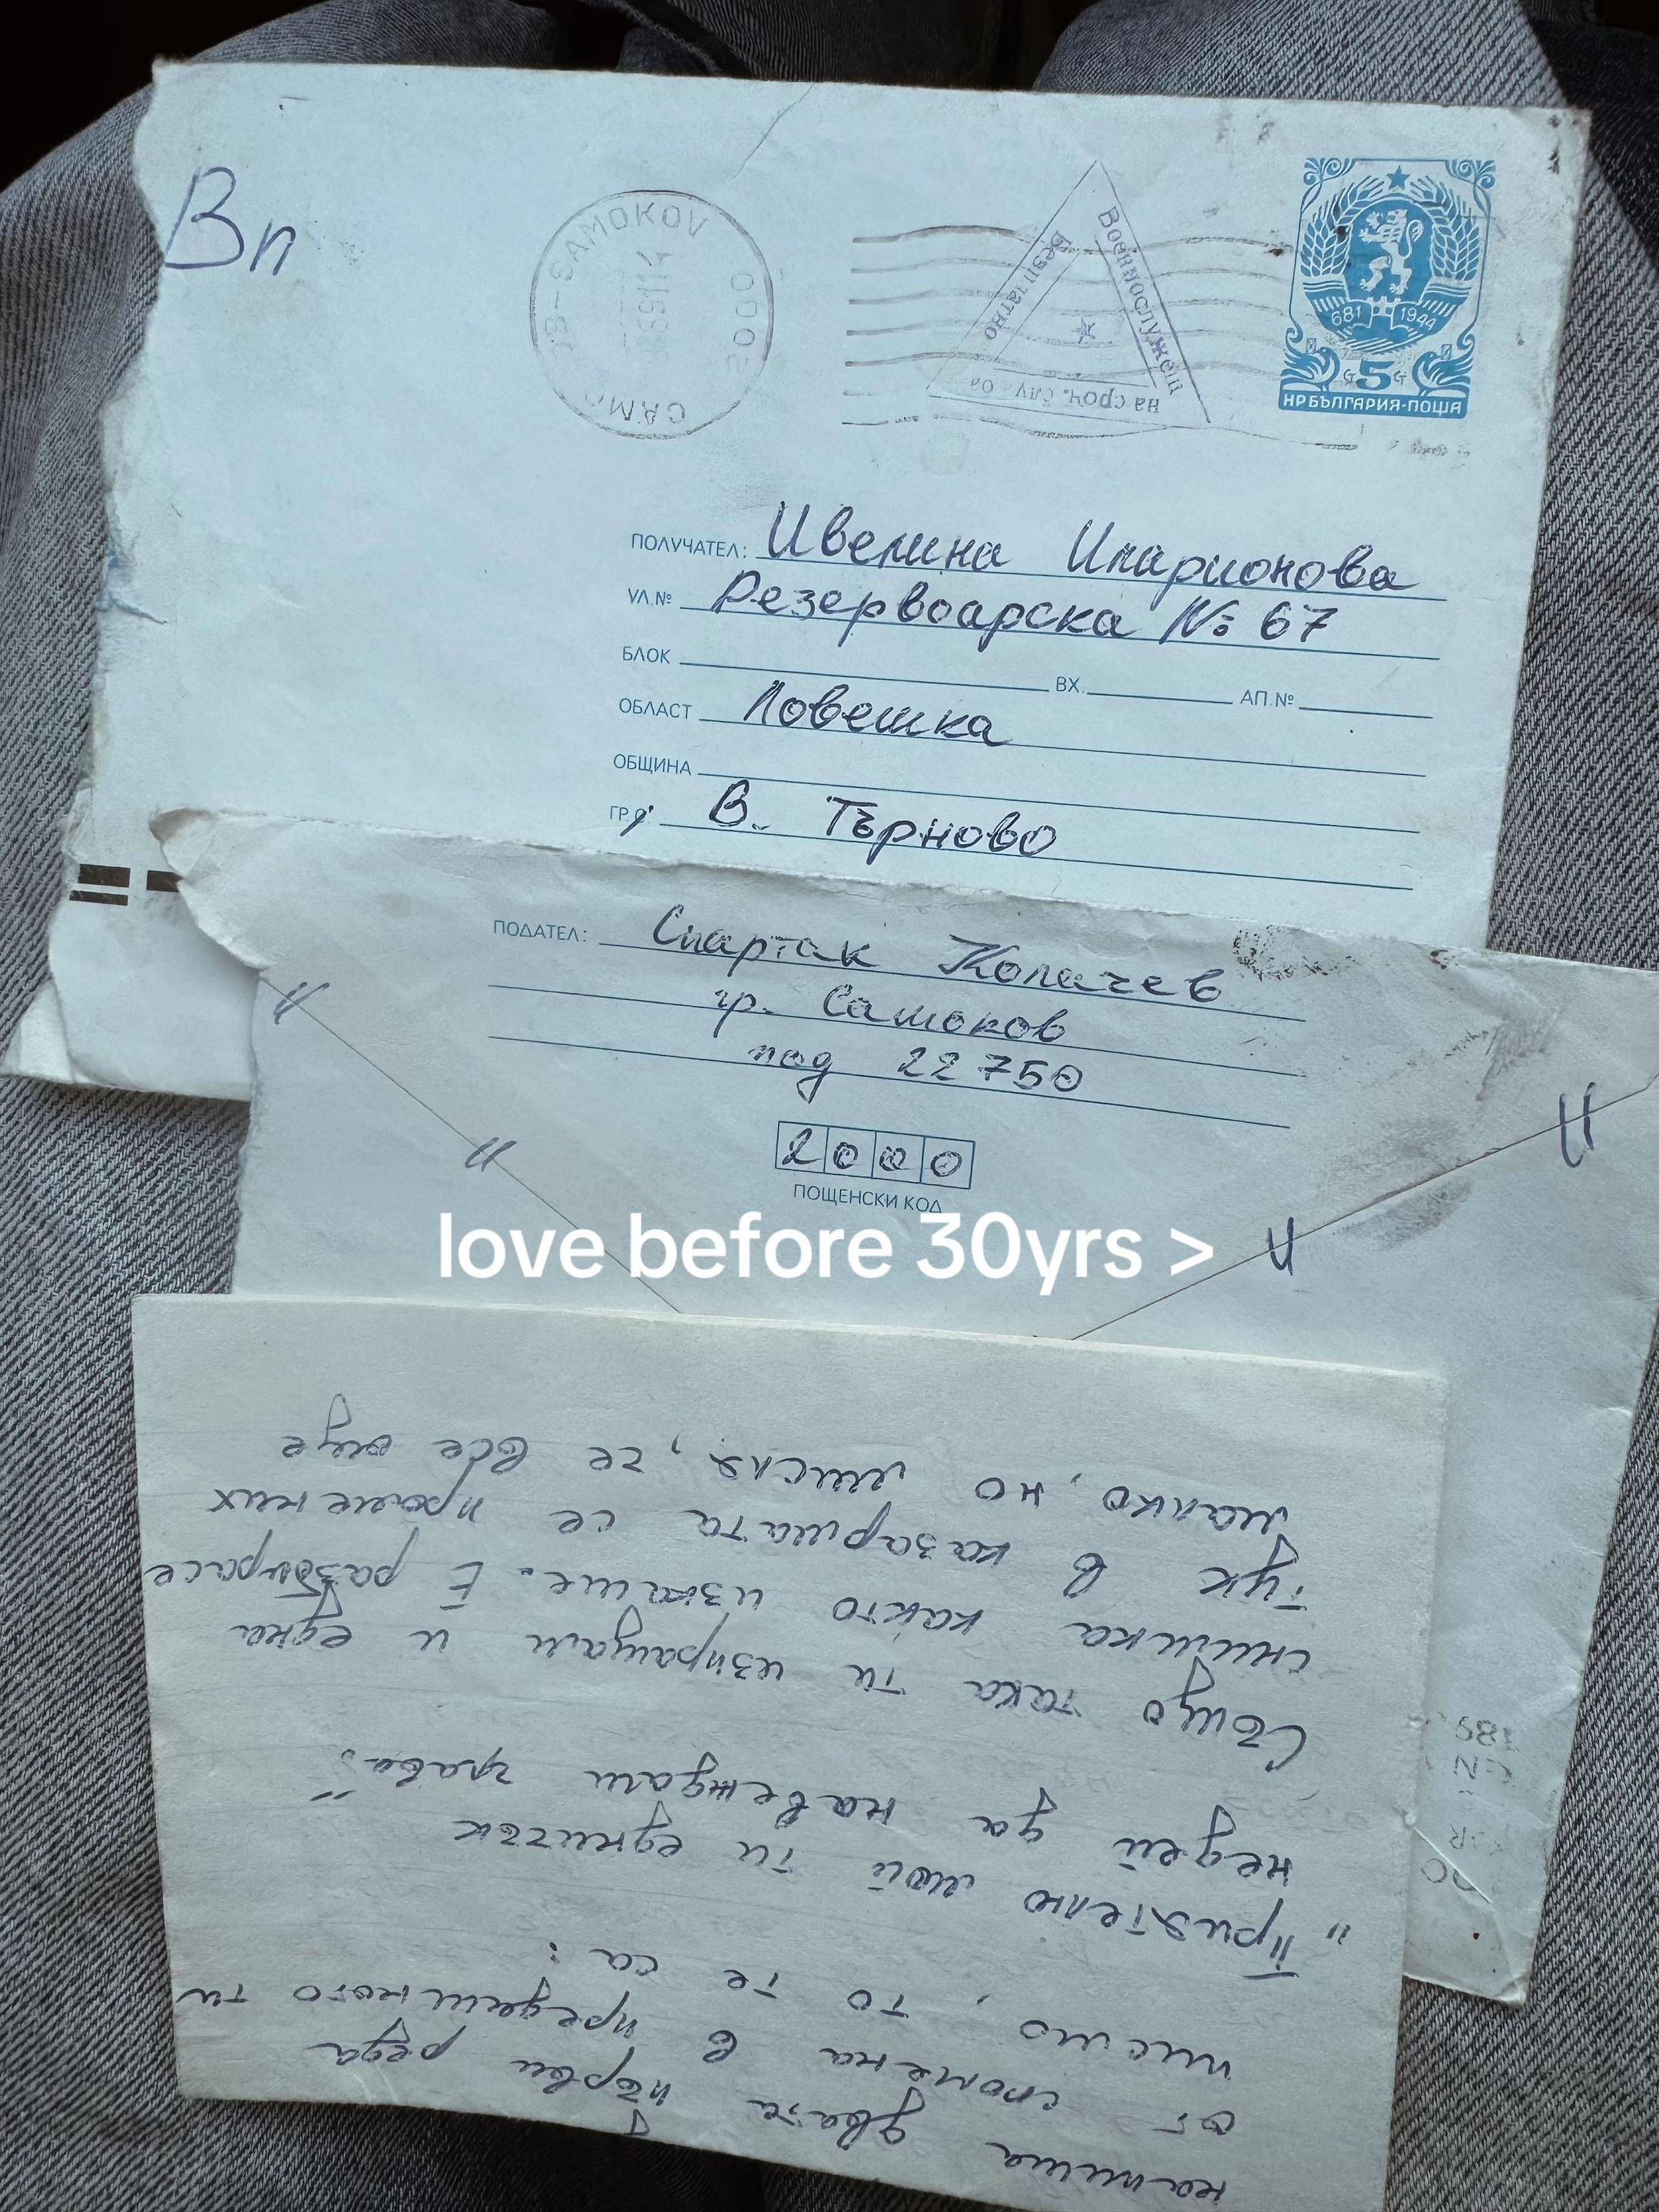 Вп
ОВ-SAMOKOV
2000
Военнослужещ
на сроч. служба
Безплатно
681 1944
5
НР БЪЛГАРИЯ·ПОЩА
ПОЛУЧАТЕЛ: Ивелина Иларионова
УЛ.№ Резервоарска № 67
БЛОК ВХ. АП.№
ОБЛАСТ Ловешка
ОБЩИНА
ГР. В. Търново
ПОДАТЕЛ: Спартак Копачев
гр. Самоков
под 22750
2000
ПОЩЕНСКИ КОД
love before 30yrs >
напиша двата първи реда
от спомена в предишното ти
писмо, то те са:
"Приятелю мой ти едничък
недей да навеждаш глава."
Също така ти изпращам и една
снимка както искаше. Е разбирасе
тук в казармата се промених
малко, но мисля, че все още